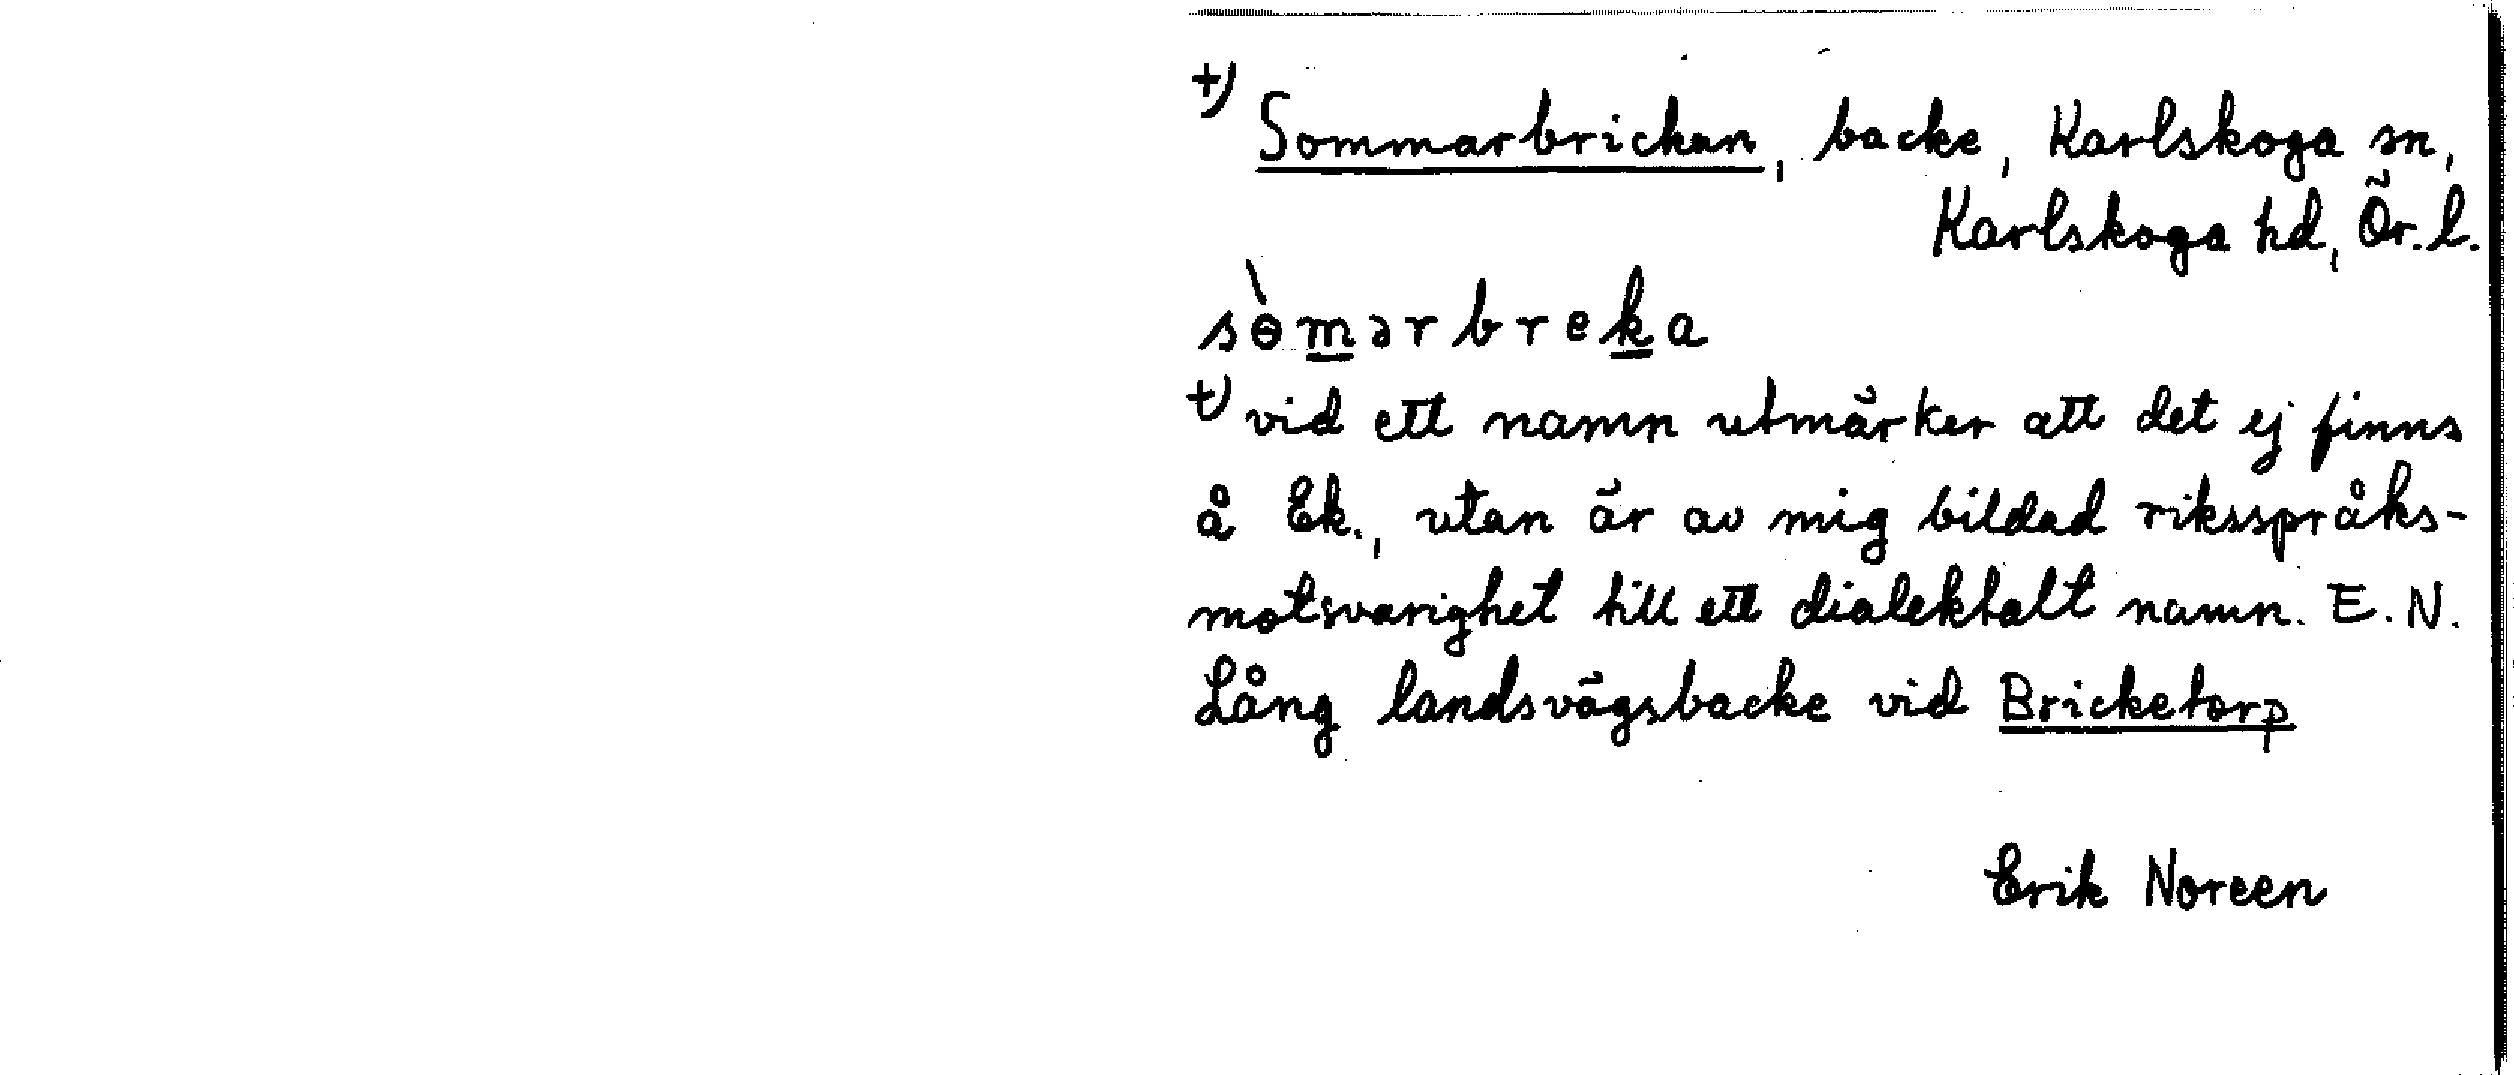 +) Sommarbrickan, backe, Karlskoga sn,
Karlskoga hd, Ör. l.
sɵ̀mərbreka
+) vid ett namn utmärker att det ej finns
å Ek., utan är av mig bildad riksspråks-
motsvarighet till ett dialektalt namn. E. N.
Lång landsvägsbacke vid Bricketorp
Erik Noreen